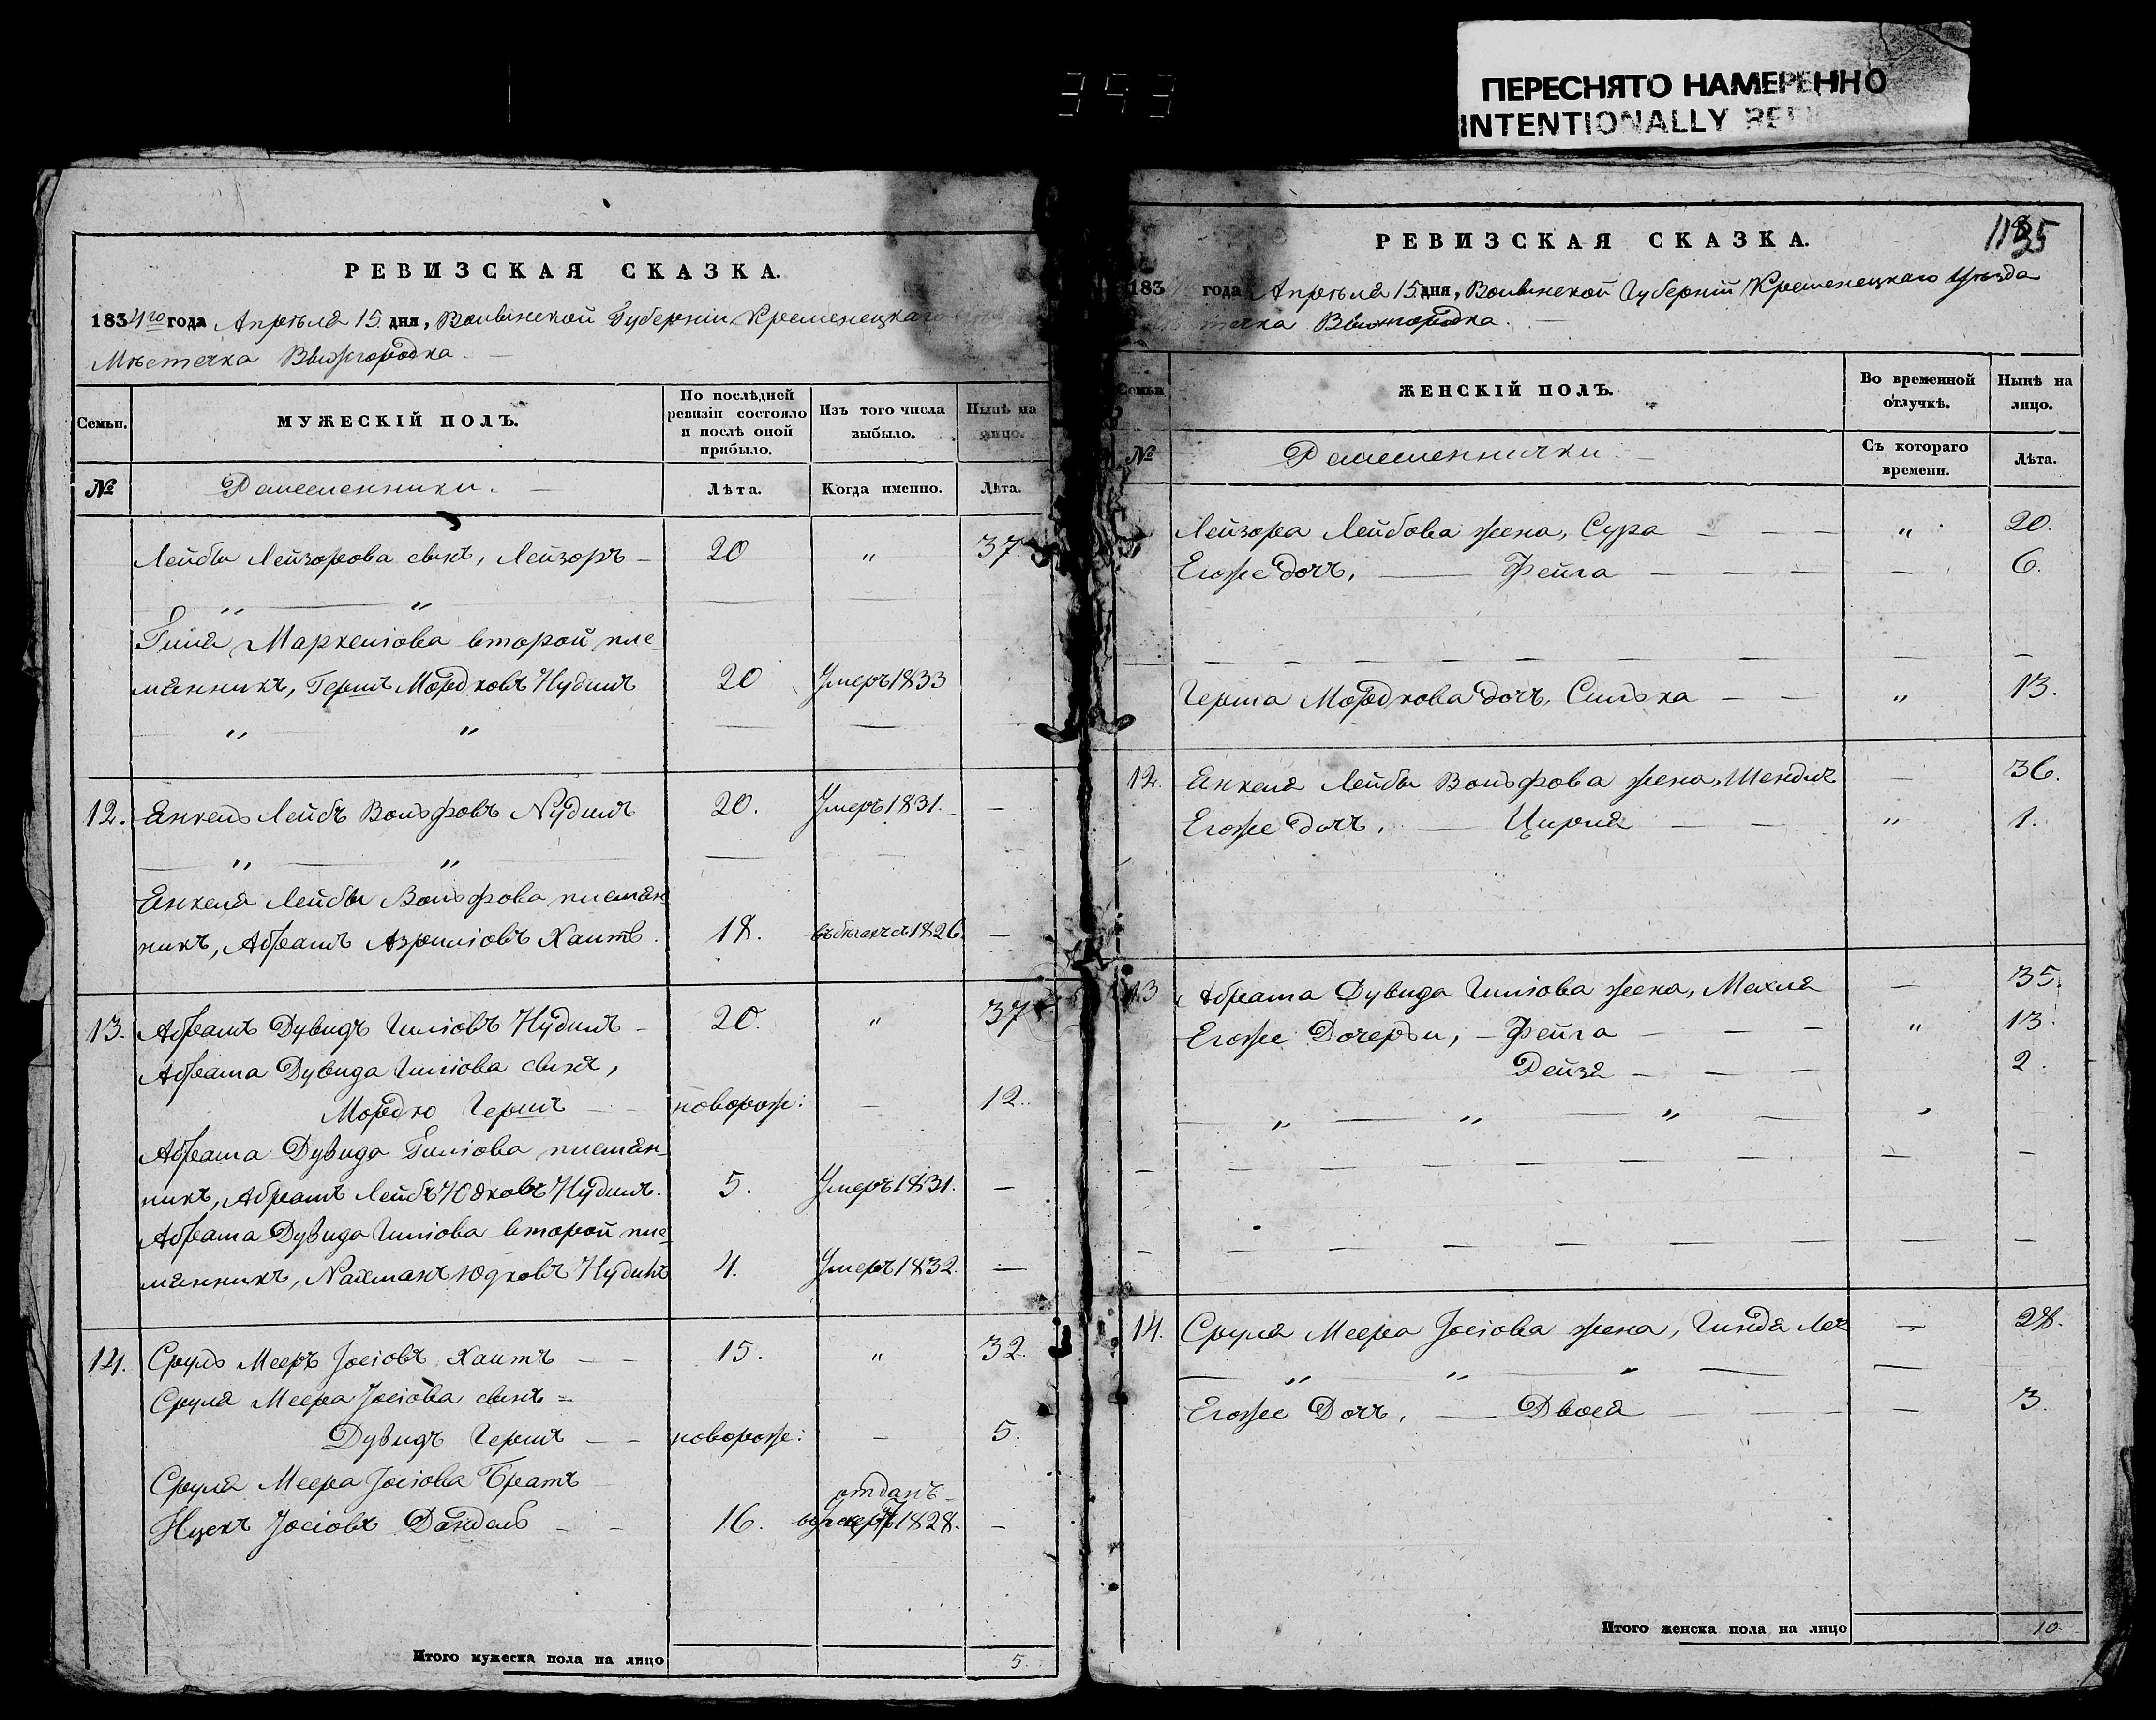 353
ПЕРЕСНЯТО НАМЕРЕННО
INTENTIONALLY
РЕВИЗСКАЯ СКАЗКА.
1834го года Апрѣля 15 дня, Волынской Губерніи Кременецкаго
Мѣстечка Выжгородка
Семьи. МУЖЕСКІЙ ПОЛЪ. По послѣдней ревизіи состояло и послѣ оной прибыло. Изъ того числа выбыло. Нынѣ на лицо.
№ Ремесленники. Лѣта. Когда именно. Лѣта.
Лейбы Лейзорова сынъ, Лейзоръ – 20 „ 37
„ „
Гиля Маркелiова второй пле
мянникъ, Герш Мордковъ Нудиль 20 Умеръ 1833
„ „
12. Енкель Лейбъ Вольфовъ Нудиль 20. Умеръ 1831. —
„ „
Енкеля Лейбы Вольфова племян
никъ, Абрамъ Азрилiовъ Хаитъ. 18. въ бѣгахъ съ 1826. —
13. Абрамъ Дувидъ Гилiовъ Нудиль – 20. „ 37
Абрама Дувида Гилiова сынъ,
Мордко Гершъ — новорож: — 12.
Абрама Дувида Гилiова племян-
никъ, Абрамъ Лейбъ Юдковъ Нудиль. 5. Умеръ 1831. —
Абрама Дувида Гилiова второй пле
мянникъ, Нахманъ Юдковъ Нудиль 4. Умеръ 1832. —
14. Сруль Мееръ Іосiовъ Хаитъ — 15. „ 32.
Сруля Меера Іосiова сынъ =
Дувидъ Гершъ — новорож: — 5.
Сруля Меера Іосiова Братъ
отданъ
Іосiовъ 16. 1828. —
Итого мужеска пола на лицо 5.
РЕВИЗСКАЯ СКАЗКА.
183 года Апрѣля 15 дня, Волынской Губерніи Кременецкаго Уѣзда
течка Выжгородка.
Семьи ЖЕНСКІЙ ПОЛЪ. Во временной отлучкѣ. Нынѣ на лицо.
№ Ремесленнички. Съ котораго времени. Лѣта.
Лейзора Лейбова жена, Сура — „ 20.
Егоже дочь, — Фейга — — 6.
Герша Мордкова дочь, Силька — „ 13.
12. Енкеля Лейбы Вольфова жена, Шендль — 36.
Егоже дочь, — Цирля — „ 1.
13 Абрама Дувида Гилiова жена, Махля — 35.
Егоже Дочерьи, – Фейга — „ 13.
Рейзя — 2.
„ „ „ „
14. Сруля Меера Іосiова жена, Гинда Лея — 28.
„ „ „
Егоже Дочь, — Двося — 3.
Итого женска пола на лицо 10.